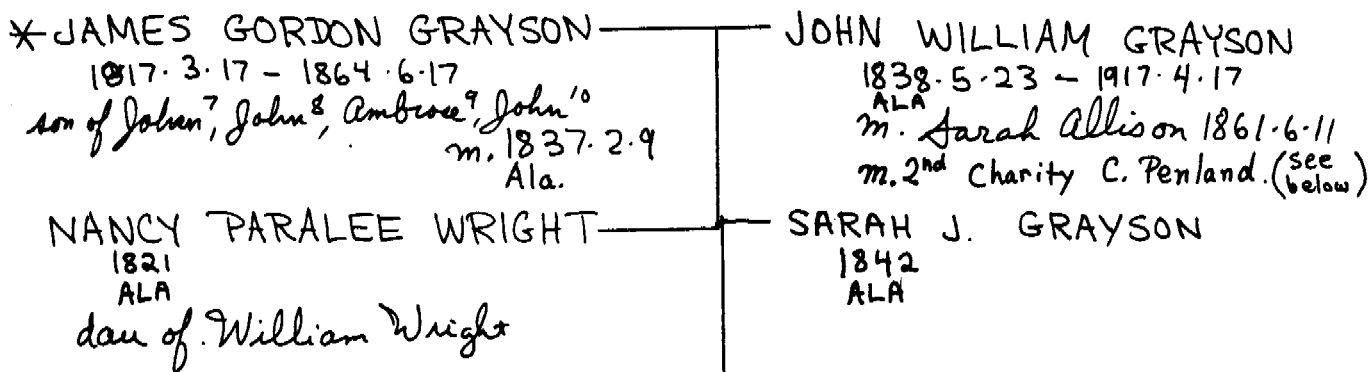 *JAMES GORDON GRAYSON
1817·3·17 – 1864·6·17
son of John⁷, John⁸, Ambrose⁹, John¹⁰
m. 1837·2·9
Ala.
NANCY PARALEE WRIGHT
1821
ALA
dau of William Wright
JOHN WILLIAM GRAYSON
1838·5·23 – 1917·4·17
ALA
m. Sarah Allison 1861·6·11
m. 2nd Charity C. Penland. (see below)
SARAH J. GRAYSON
1842
ALA